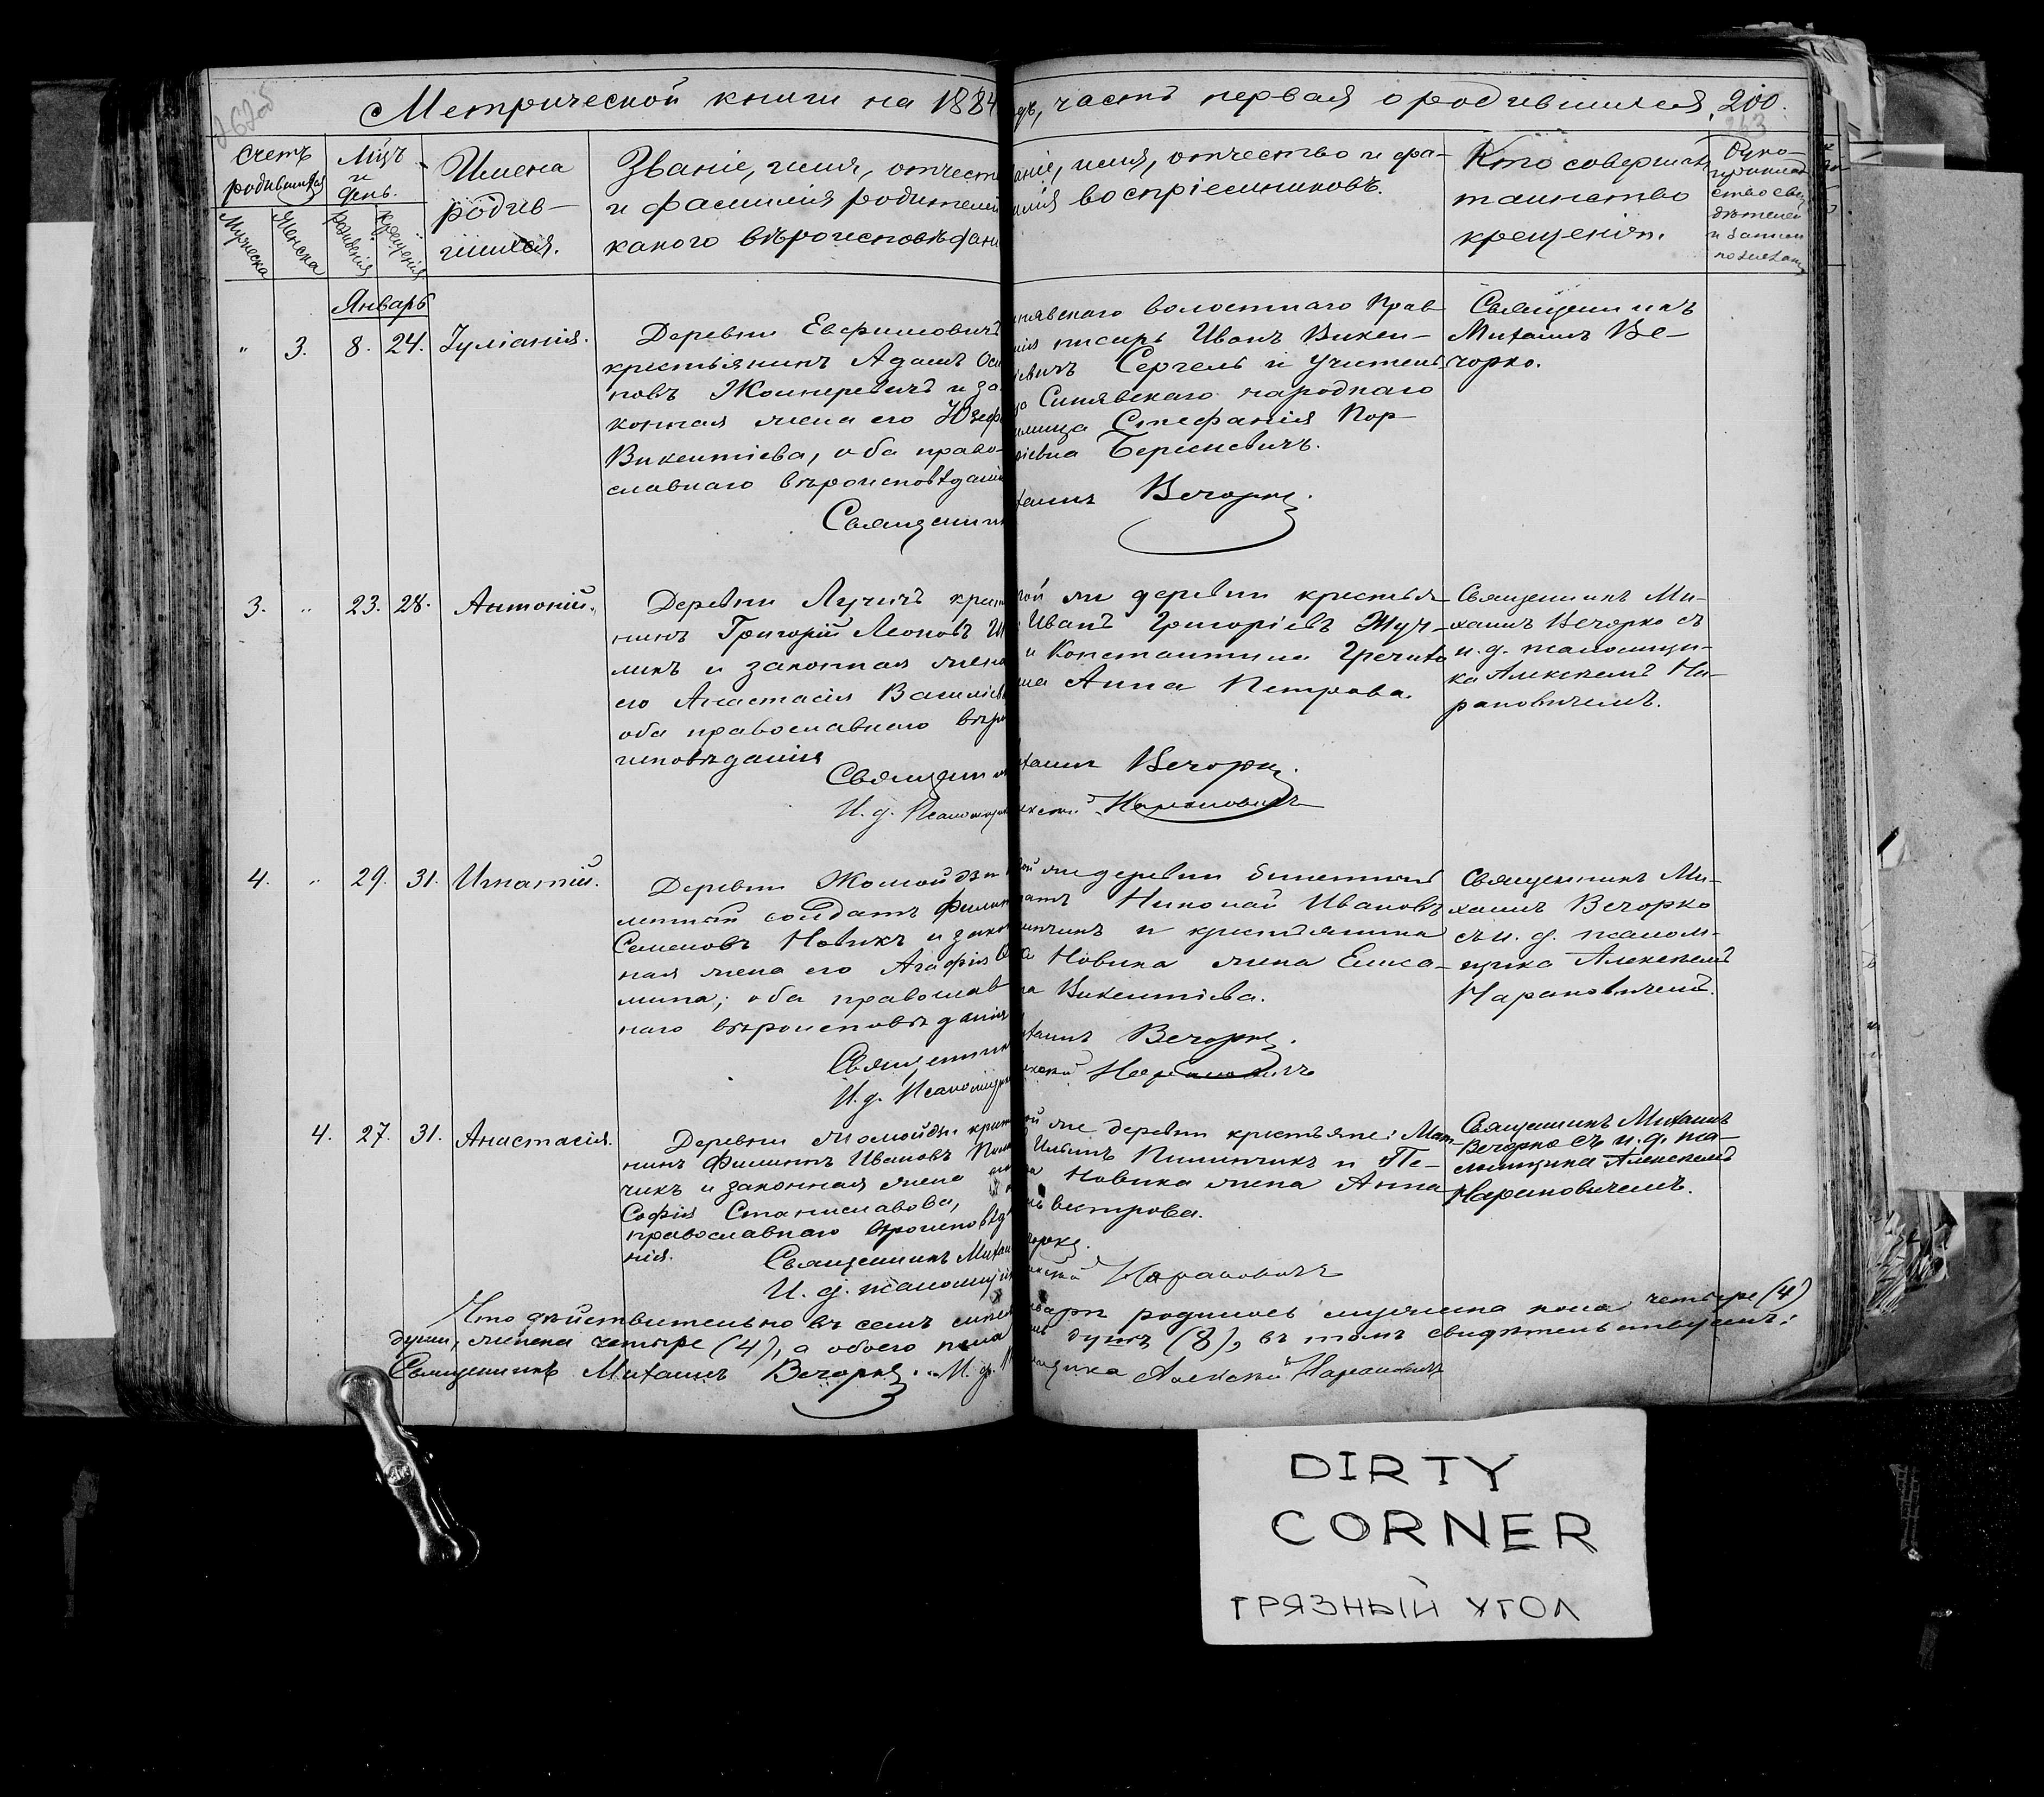 Метрической книги на 1884 дъ, часть первая о родившихся. 200.
263
Счетъ родившихся
Мѣцъ и день.
Имена родив-
шихся.
Званіе, имя, отчест
и фамилія родителей
какого вѣроисповѣдан
аніе, имя, отчество и фа-
милія воспріемниковъ.
Кто совершилъ
таинство
крещенія.
Руко-
приклад
ство сви
дѣтелей
и записи
по желан
Мужеска
Женска
рожденія
крещенія
Январь
" 3. 8. 24. Іуліанія.
Деревни Евфимовичъ
крестьянинъ Адамъ Оси
повъ Жомнеревичъ и за-
конная жена его Юзеф
Викентіева, оба право-
славнаго вѣроисповѣдані
Священни
нявскаго волостнаго Прав
нія писарь Иванъ Викен-
іевичъ Сергель и учитель
Синявскаго народнаго
илища Стефанія Пор-
іевна
хаилъ Вечорко.
Священникъ
Михаилъ Ве-
чорко.
3. " 23. 28. Антоній.
Деревни Лучичъ крест
нинъ Григорій Леоновъ
микъ и законная жена
его Анастасія Василіев
оба православнаго вѣро
исповѣданія
Священни
И. д. Псаломщ
ой же деревни крестья
Иванъ Григоріевъ Жуч-
и Константина
на Анна Петрова.
хаилъ Вечорко.
лексѣй Нарановичъ
Священникъ Ми-
хаилъ Вечорко съ
и. д. псаломщи-
ка Алексѣемъ На-
рановичемъ.
4. " 29. 31. Игнатій.
Деревни Жомойди
летный солдатъ Филип
Семеновъ Новикъ и закон
ная жена его Агафія
мина, оба православ
наго вѣроисповѣданія
Священник
И. д. Псаломщи
ой же деревни билетный
датъ Николай Ивановъ
инчикъ и крестьянина
Новика жена Елиса-
та Викентіева.
хаилъ Вечорко.
лексѣй Нарановичъ
Священникъ Ми-
хаилъ Вечорко
съ и. д. псалом-
щика Алексѣемъ
Нарановичемъ.
4. 27. 31. Анастасія.
Деревни Жомойди крест
нинъ Филиппъ Ивановъ Пили
чикъ и законная жена его
Софія Станиславова,
православнаго вѣроисповѣд
нія.
Священникъ Михаи
И. д. псаломщи
ой же деревни крестьяне: Мат-
Ильинъ Пилинчикъ и Пе-
Новика жена Анна
львестрова.
чорко.
лексѣй Нарановичъ
Священникъ Михаилъ
Вечорко съ и. д. пса-
ломщика Алексѣемъ
Нарановичемъ.
Что дѣйствительно въ семъ
нварѣ родилось мужеска пола четыре (4)
души, женска четыре (4), а обоего пола
душъ (8), въ томъ свидѣтельствуемъ:
Священникъ Михаилъ Вечорко. И. д.
мщика Алексѣй Нарановичъ
DIRTY
CORNER
ГРЯЗНЫЙ УГОЛ